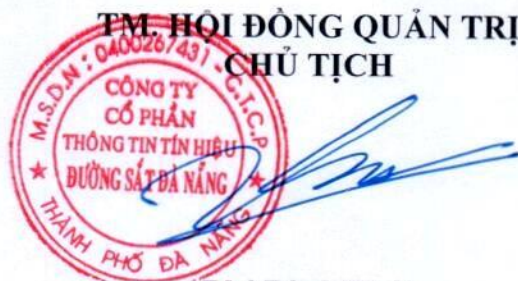 TM. HỘI ĐỒNG QUẢN TRỊ
CHỦ TỊCH
M.S.D.N: 0400267431 - C.T.C.P
CÔNG TY
CỔ PHẦN
THÔNG TIN TÍN HIỆU
ĐƯỜNG SẮT ĐÀ NẴNG
THÀNH PHỐ ĐÀ NẴNG